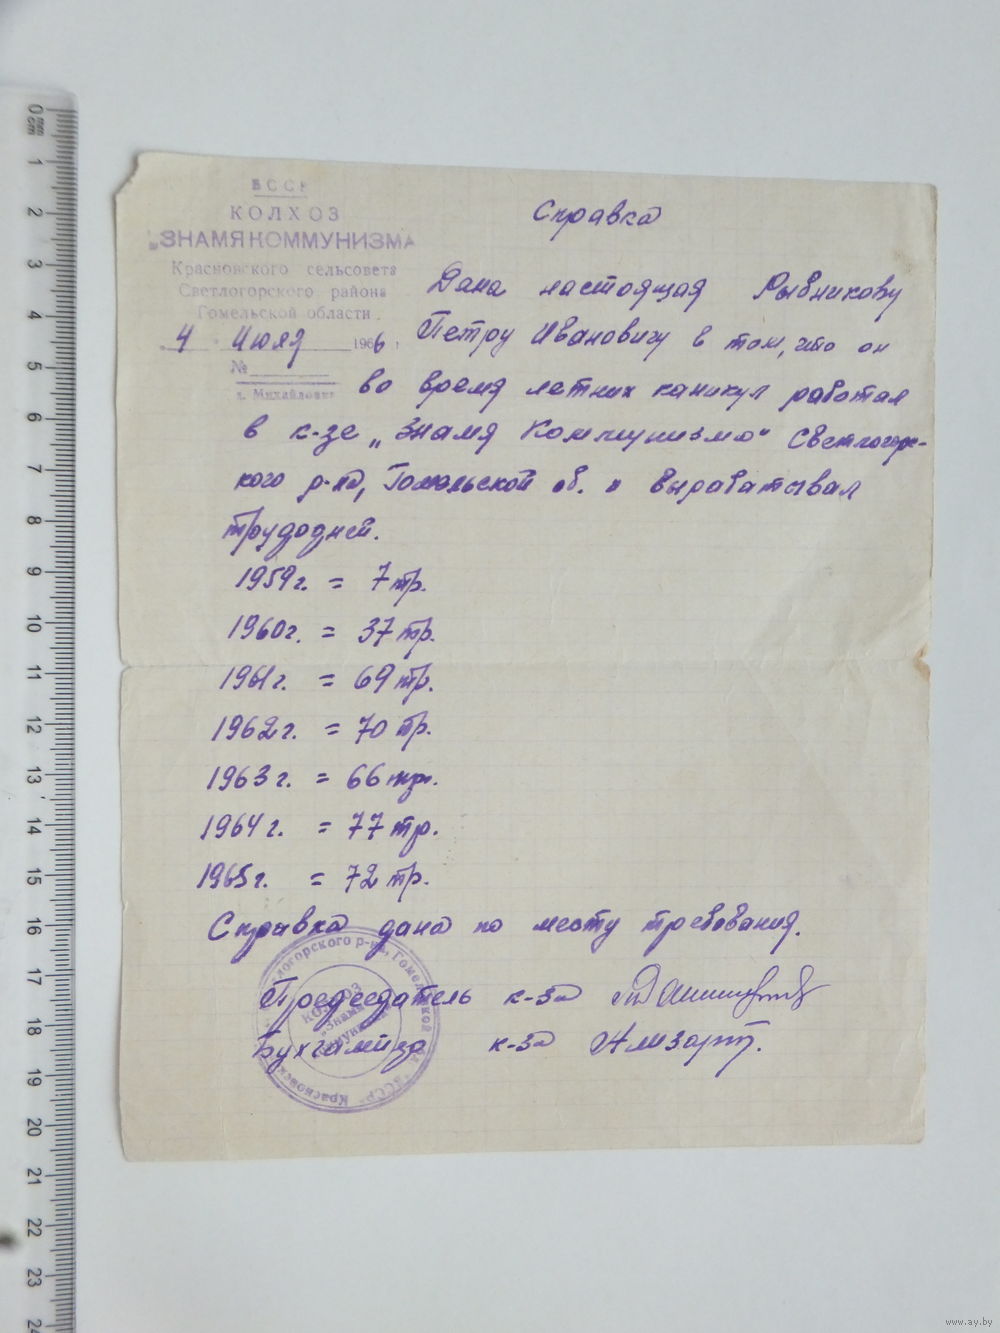 БССР
КОЛХОЗ
„ЗНАМЯ КОММУНИЗМА
Красновского сельсовета
Светлогорского района
Гомельской области
4 июля 1966
№
д. Михайловка
Справка
Дана настоящая Рыбникову
Петру Ивановичу в том, что он
во время летних каникул работал
в к-зе „Знамя Коммунизма" Светлогорс-
кого р-на, Гомельской об. и вырабатывал
трудодней.
1959г. = 7 тр.
1960г. = 37 тр.
1961г. = 69 тр.
1962г. = 70 тр.
1963г. = 66 тр.
1964г. = 77 тр.
1965г. = 72 тр.
Справка дана по месту требования.
Председатель к-за
Бухгалтер к-за
КОЛХОЗ
"Знамя
0 mm
cm
1
2
3
4
5
6
7
8
9
10
11
12
13
14
15
16
17
18
19
20
21
22
23
24
www.ay.by